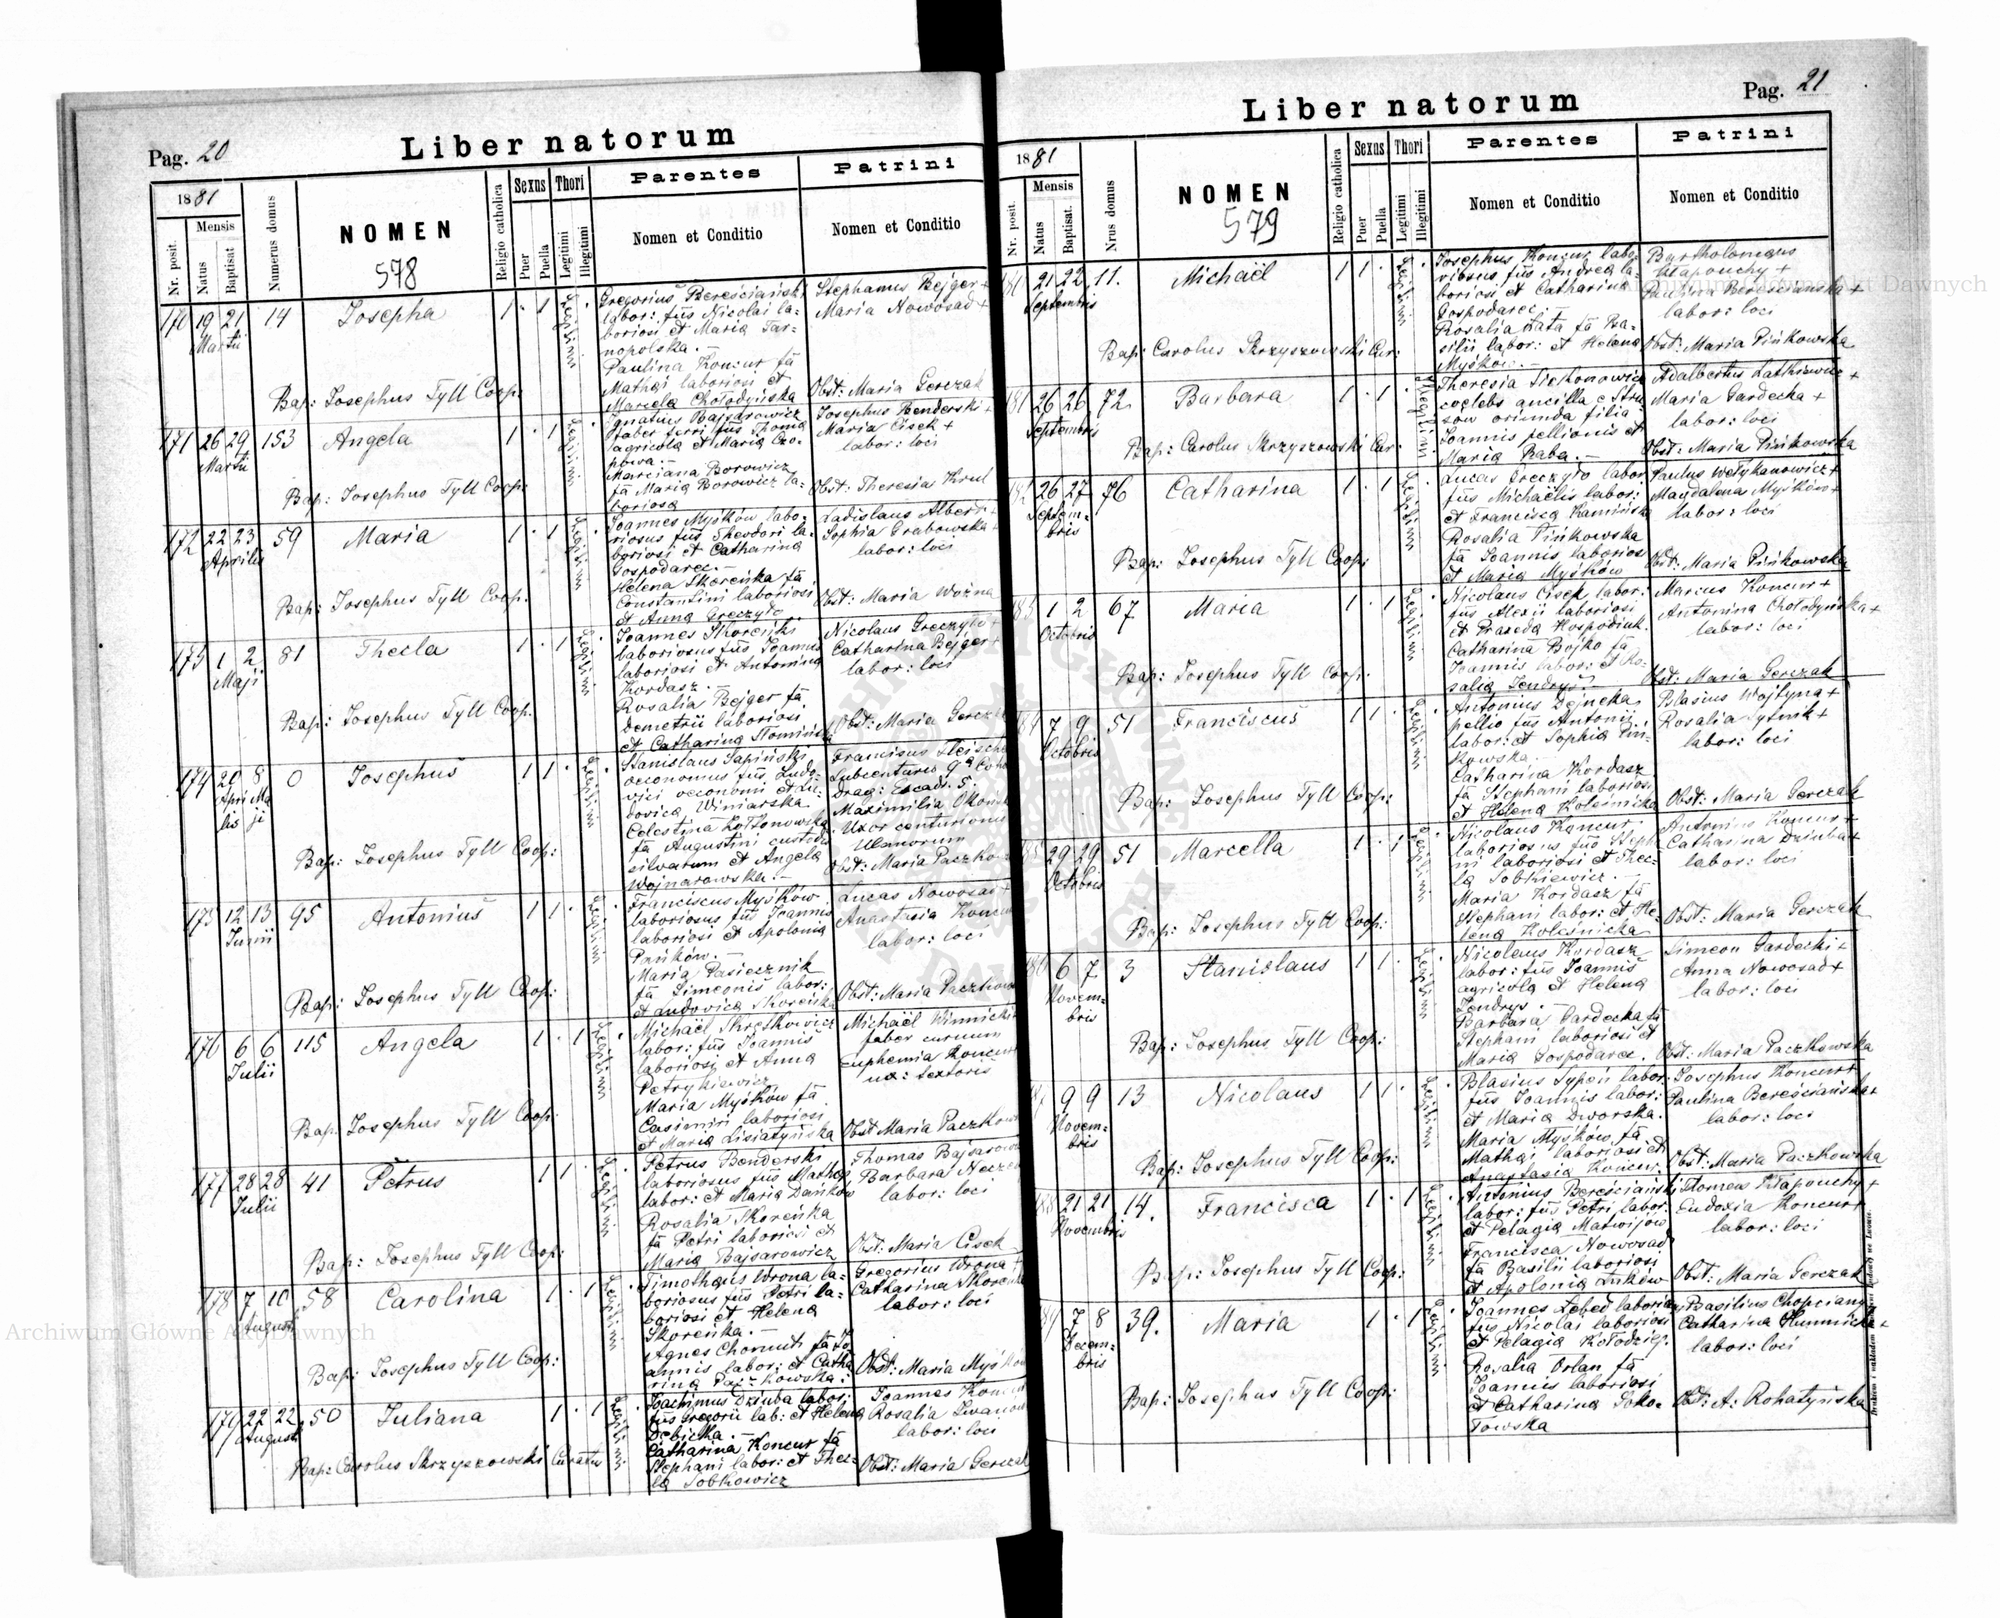 Pag. 20
Liber natorum
1881
Mensis
Nr. posit.
Natus
Baptisat
Numerus domus
NOMEN
578
Religio catholica
Sexus
Puer
Puella
Thori
Legitimi
Illegitimi
Parentes
Nomen et Conditio
Patrini
Nomen et Conditio
170 19 21 14 Josepha 1 · 1
Martii
Gregorius Bereściański
labor: fus Nicolai la-
boriosi et Maria Tar-
nopolska. —
Paulina Koncur fa
Mathai laboriosi et
Mariela Chołodyńska
Stephanus Bejger +
Maria Nowosad +
Bap: Josephus Tyll Coop:
Obst: Maria Gerczak
171 26 29 153 Angela 1 · 1
Martii
Ignatius Bajsarowicz
faber ferri fus Thoma
agricola et Maria
powa. —
Marciana Borowicz
fa Maria Borowicz la-
boriosa
Josephus Benderski +
Maria Cisek +
labor: loci
Bap: Josephus Tyll Coop:
Obst: Theresia Krul
172 22 23 59 Maria 1 · 1
Aprilis
Joannes Myśków labo-
riosus fus Theodori la-
boriosi et Catharina
Gospodarec. —
Helena Skoreńka fa
Constantini laboriosi
et Anna Greczyło
Ladislaus Alberti
Sophia Grabowska
labor: loci
Bap: Josephus Tyll Coop.
Obst: Maria Woźna
173 1 2 81 Thecla 1 · 1
Maji
Joannes Skoreński
laboriosus fus Joannis
laboriosi et Antonina
Kordasz. —
Rosalia Bejger fa
Demetrii laboriosi
et Catharina Słomińska
Nicolaus Greczyło +
Catharina Bejger +
labor: loci
Bap: Josephus Tyll Coop.
Obst: Maria Gercza
174 20 8 0 Josephus 1 1 ·
Apri Ma
lis ji
Stanislaus Sapiński
oeconomus fus Ludo-
vici oeconomi et Lu-
dovica Winiarska
Celestina Kołkonowska
fa Augustini custodis
silvarum et Angela
Wojnarowska. —
Maximilia
Uxor centurionis
Ulanorum
Bap: Josephus Tyll Coop:
Obst: Maria Paczko
175 12 13 95 Antonius 1 1 ·
Junii
Franciscus Myśków
laboriosus fus Joannis
laboriosi et Apolonia
Pańków. —
Maria Pasiecznik
fa Simeonis labor:
et Ludovica Skoreńska
Lucas Nowosad +
Anastasia Koncur
labor: loci
Bap: Josephus Tyll Coop:
Obst: Maria Paczkow
176 6 6 115 Angela 1 · 1
Julii
Michaël Skretkowicz
labor: fus Joannis
laboriosi et Anna
Petrykiewicz
Maria Myśków fa
Casimiri laboriosi
et Maria Lisiatyńska
Michaël Winnicki
faber curuum
Euphemia Koncur
ux: textoris
Bap: Josephus Tyll Coop:
Obst Maria Paczkow
177 28 28 41 Petrus 1 1 ·
Julii
Petrus Benderski
laboriosus fus Mathai
labor: et Maria Dańków
Rosalia Skoreńka
fa Petri laboriosi et
Maria Bajsarowicz
Thomas Bajsarow
Barbara
labor: loci
Bap: Josephus Tyll Coop:
Obst: Maria Cisek
178 7 10 58 Carolina 1 · 1
Augusti
Timothaus Wrona la-
boriosus fus Petri la-
boriosi et Helena
Skoreńka. —
Agnes Chomut fa Jo
annis labor: et Catha
rina Paczkowska:
Gregorius Wrona +
Catharina Skoreń
labor: loci
Bap: Josephus Tyll Coop:
Obst: Maria Myśk
179 22 22 50 Juliana 1 · 1
Augusti
Joachimus Dziuba labor:
fus Gregorii lab: et Helena
Debicka. —
Catharina Koncur fa
Stephani labor: et Thec-
la Sobkowicz
Joannes Koncur
Rosalia Iwanow
labor: loci
Bap: Carolus Skrzyszowski Curatus
Obst: Maria Gerczak
Pag. 21
Liber natorum
1881
Mensis
Nr. posit.
Natus
Baptisat.
Nrus domus
NOMEN
579
Religio catholica
Sexus
Puer
Puella
Thori
Legitimi
Illegitimi
Parentes
Nomen et Conditio
Patrini
Nomen et Conditio
21 22 11. Michaël 1 1 ·
Septembris
Josephus Koncur labo-
riosus fus Andrea la-
boriosi et Catharina
Gospodarec. —
Rosalia nata fa Ba-
silii labor: et Helena
Myśków. —
Bartholomaus
Kłapouchy +
Paulina Bereściańska +
labor: loci
Bap: Carolus Skrzyszowski Cur:
Obst: Maria Pińkowska
181 26 26 72 Barbara 1 · 1
Septembris
Theresia
coelebs ancilla e Stru
sow oriunda filia
Joannis pellionis et
Maria Baba. —
Adalbertus
Maria Gardecka +
labor: loci
Bap: Carolus Skrzyszowski Cur:
Obst: Maria Pińkowska
182 26 27 76 Catharina 1 · 1
Septem-
bris
Lucas Greczyło labor
fus Michaelis labor:
et Francisca Kamińska
Rosalia Pińkowska
fa Joannis laboriosi
et Maria Myśków
Paulus Wetykanowicz +
Magdalena Myśków +
labor: loci
Bap: Josephus Tyll Coop:
Obst: Maria Pińkowska
183 1 2 67 Maria 1 · 1
Octobris
Nicolaus Cisek labor:
fus Alexii laboriosi
et Praxeda Hospodiuk.
Catharina Bojko fa
Joannis labor: et Ro-
salia Jendrys
Marcus Koncur +
Antonina Chołodyńska +
labor: loci
Bap: Josephus Tyll Coop.
Obst: Maria Gerczak
184 7 9 51 Franciscus 1 1 ·
Octobris
Antonius Dejneka
pellio fus Antonii
labor: et Sophia Pin-
kowska.
Catharina Kordasz
fa Stephani laboriosi
et Helena Koleśnicka
Blasius Wojtyna +
Rosalia Sytnik +
labor: loci
Bap: Josephus Tyll Coop:
Obst: Maria Gerczak
185 29 29 51 Marcella 1 · 1
Octobris
Nicolaus Koncur
laboriosus fus Stepha
ni laboriosi et Thec-
la Sobkiewicz. —
Maria Kordasz fa
Stephani labor: et He-
lena Koleśnicka
Antonius Koncur +
Catharina Dziuba +
labor: loci
Bap: Josephus Tyll Coop:
Obst: Maria Gerczak
186 6 7 3 Stanislaus 1 1 ·
Novem-
bris
Nicolaus Kordasz
labor: fus Joannis
agricola et Helena
Jendrys. —
Barbara Gardecka fa
Stephani laboriosi et
Maria Gospodarec.
Simeon Gardecki +
Anna Nowosad +
labor: loci
Bap: Josephus Tyll Coop:
Obst: Maria Paczkowska
187 9 9 13 Nicolaus 1 1 ·
Novem-
bris
Blasius Sypeń labor:
fus Joannis labor:
et Maria Dworska.
Maria Myśków fa
Mathai laboriosi et
Anastasia Koncur.
Josephus Koncur +
Paulina Bereściańska +
labor: loci
Bap: Josephus Tyll Coop:
Obst: Maria Paczkowska
188 21 21 14. Francisca 1 · 1
Novembris
Antonius Bereściański
labor: fus Petri labor:
et Pelagia Matwijów
Francisca Nowosad
fa Basilii laboriosi
et Apolonia Łuków
Kłapouchy +
Eudoxia Koncur +
labor: loci
Bap: Josephus Tyll Coop:
Obst: Maria Gerczak
189 7 8 39. Maria 1 · 1
Decem-
bris
Joannes Lebed laborio
fus Nicolai laboriosi
et Pelagia Kołodziej.
Rosalia Orlan fa
Joannis laboriosi
et Catharina Soko-
łowska
Basilius Chopciany
Catharina
labor: loci
Bap: Josephus Tyll Coop:
Obst: A: Rohatyńska
Archiwum Główne Akt Dawnych
Archiwum Główne Akt Dawnych